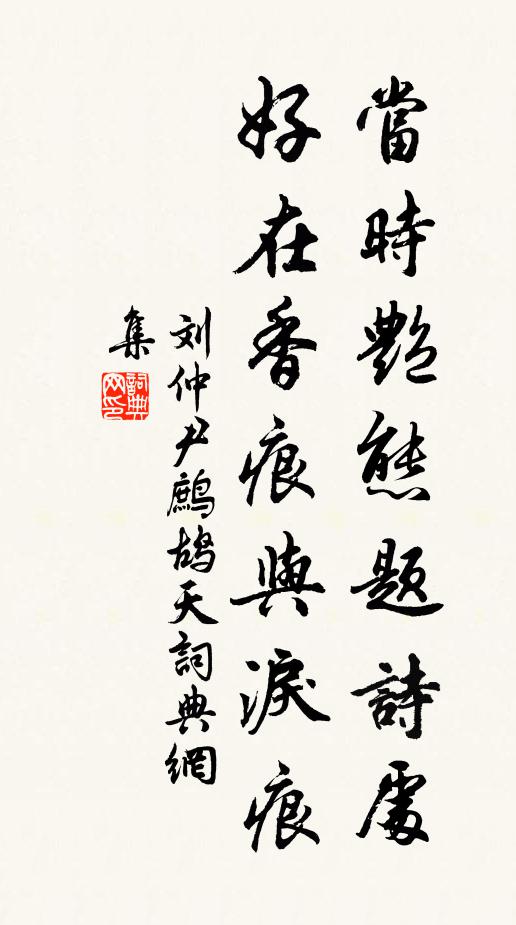 當時艷態題詩處
好在香痕與淚痕
刘仲尹鷓鴣天詞典網
集
詞典
网印